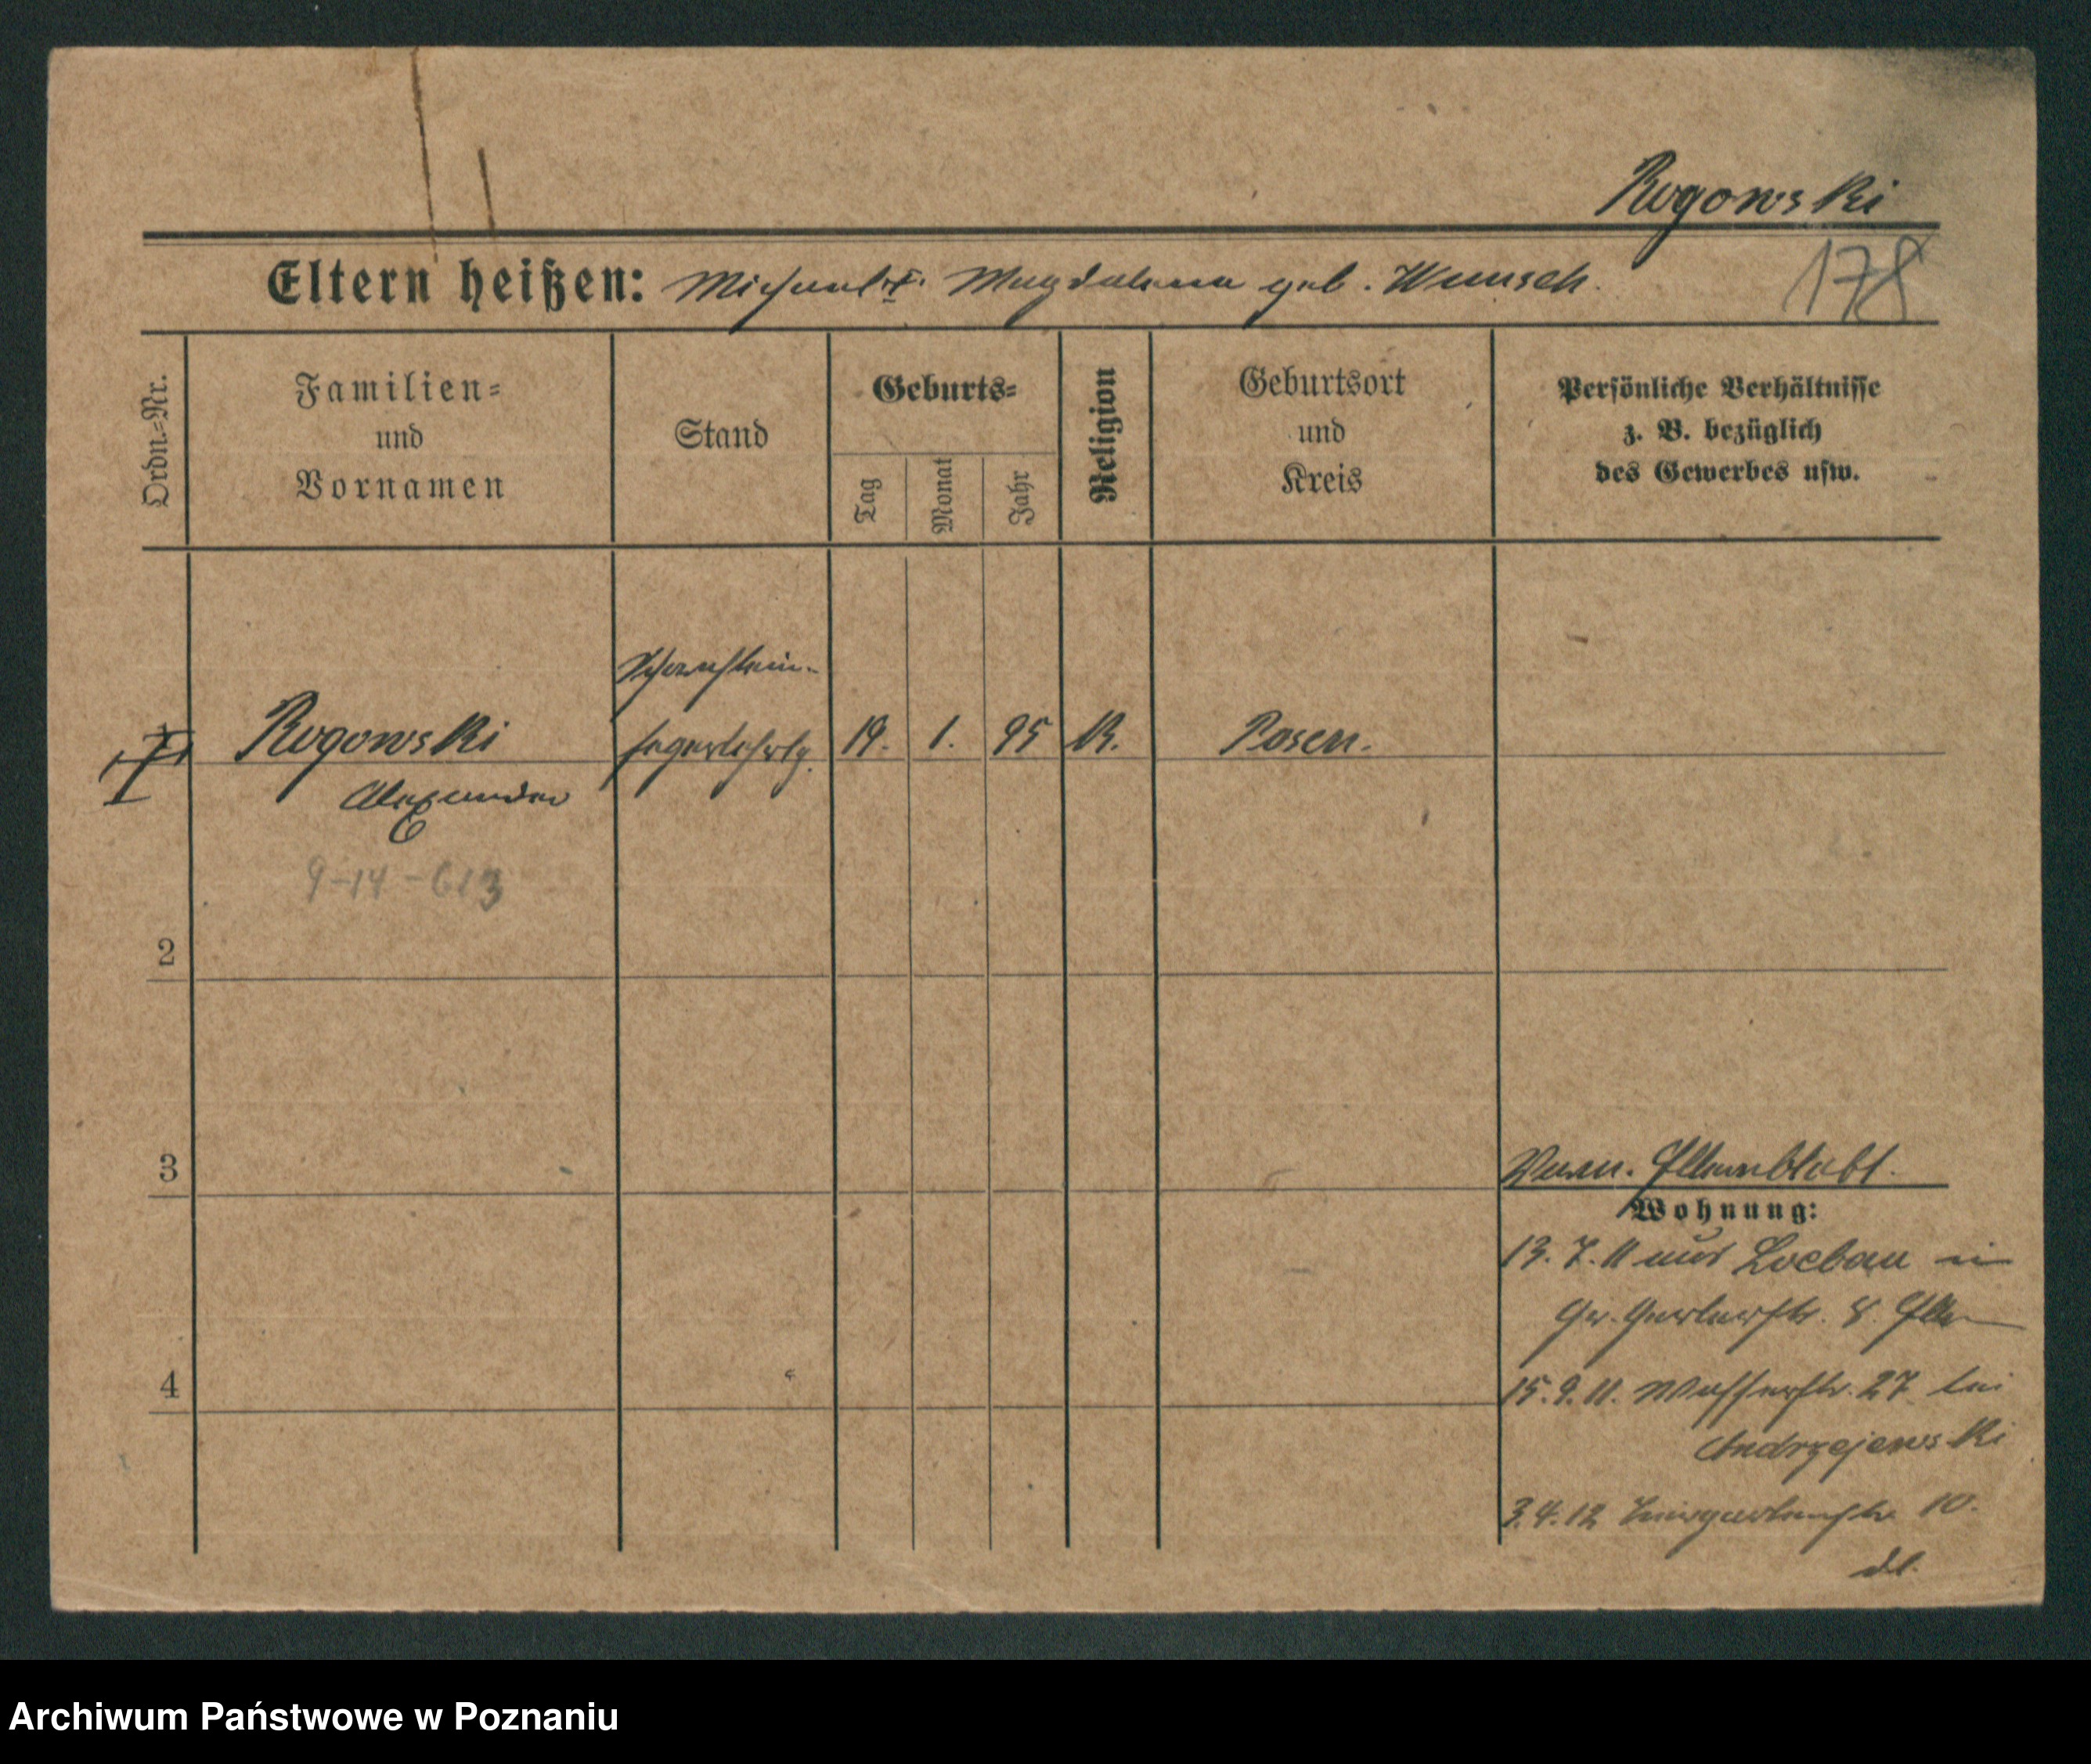 Rogowski
178
Eltern heißen: Michael u. Magdalena geb. Wunsch.
Ordn.=Nr.
Familien=
und
Vornamen
Stand
Geburts=
Tag
Monat
Jahr
Religion
Geburtsort
und
Kreis
Persönliche Verhältnisse
z. B. bezüglich
des Gewerbes usw.
Schornstein-
Rogowski fegerlehrlg. 19. 1. 95 K. Posen.
Alexander
9-14-613
2
3
Wohnung:
13. 7. 11 aus Loebau in
Gr. Gerberstr. 8.
4
15. 9. 11. Wasserstr. 27 bei
Andrzejewski
3. 4. 12 10.
Archiwum Państwowe w Poznaniu